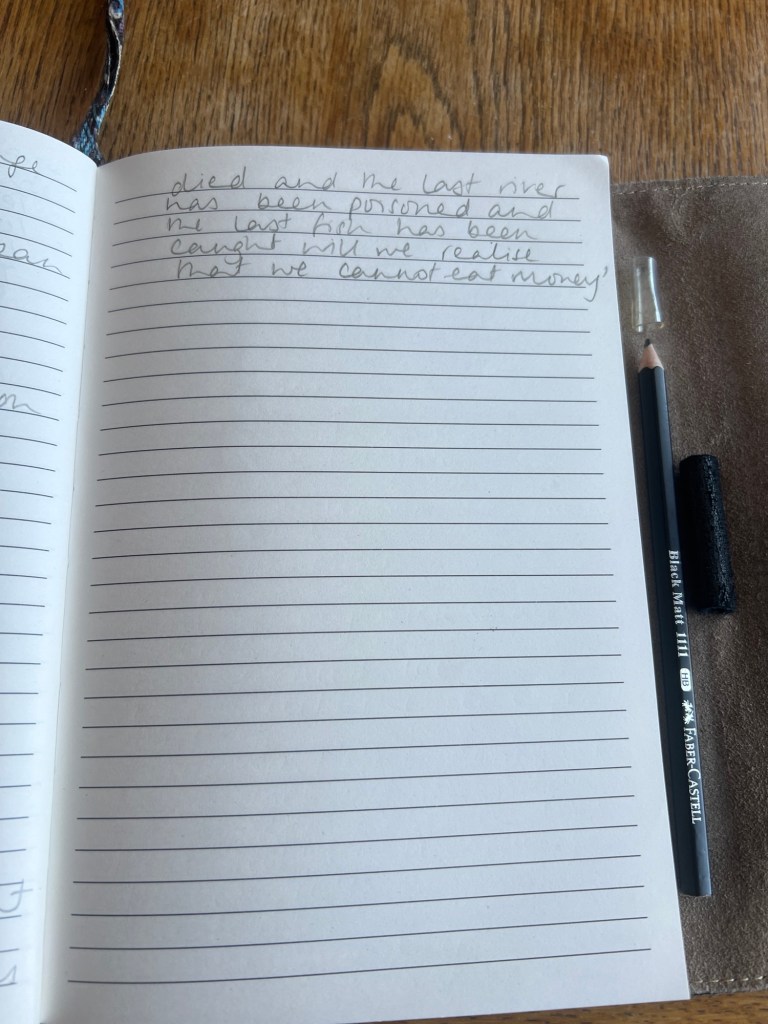 died and the last river
has been poisoned and
the last fish has been
caught will we realise
that we cannot eat money'
Black Matt 1111 HB FABER-CASTELL